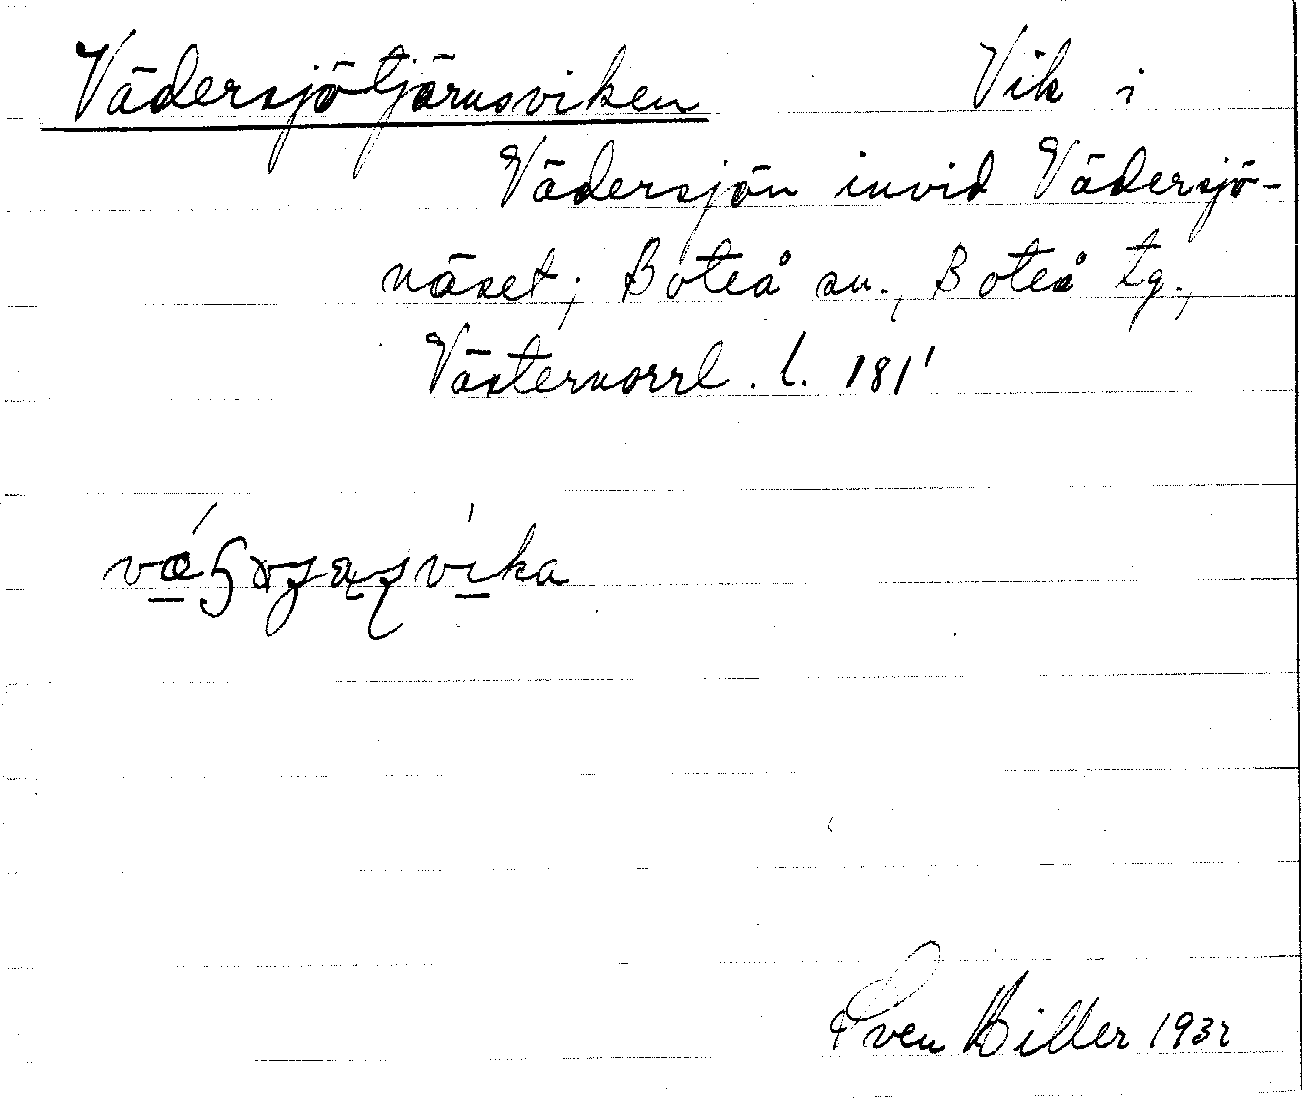 Vädersjötjärnsviken Vik i
Vädersjön invid Vädersjö-
näset; Boteå sn., Boteå tg.,
Västernorrl. l. 181'
Sven Hiller 1932